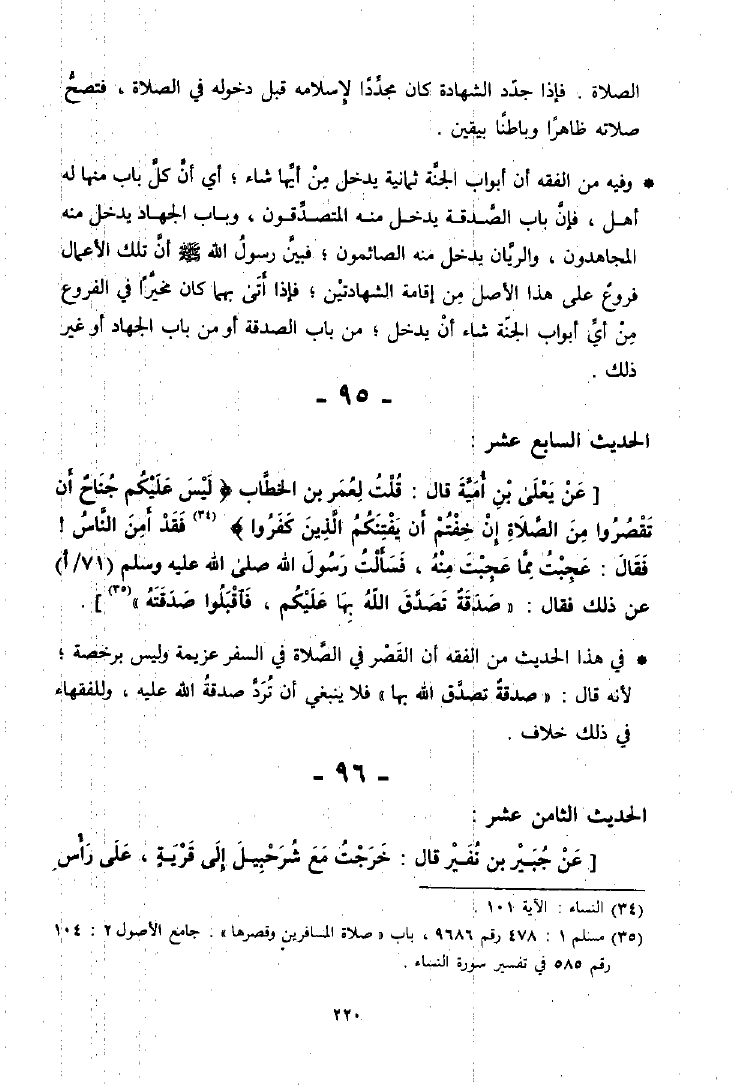 الصلاة . فإذا جدّد الشهادة كان مجدِّدًا لإسلامه قبل دخوله في الصلاة ، فتصحُّ
صلاته ظاهرًا وباطنًا بيقين .
* وفيه من الفقه أن أبواب الجنَّة ثمانية يدخل مِنْ أيِّها شاء ؛ أي أنَّ كلَّ باب منها له
أهل ، فإنَّ باب الصَّدقة يدخل منه المتصدِّقون ، وباب الجهاد يدخل منه
المجاهدون ، والريَّان يدخل منه الصائمون ؛ فبيَّن رسولُ الله ﷺ أنَّ تلك الأعمال
فروعٌ على هذا الأصل مِن إقامة الشهادتيْن ؛ فإذا أَتَىٰ بهما كان مخيَّرًا في الفروع
مِنْ أيِّ أبواب الجنّة شاء أنْ يدخل ؛ من باب الصدقة أو من باب الجهاد أو غير
ذلك .
- ٩٥ -
الحديث السابع عشر :
[ عَنْ يَعْلَىٰ بْنِ أُمَيَّةَ قال : قُلْتُ لِعُمَر بن الخطَّاب ﴿ لَيْسَ عَلَيْكُم جُنَاحٌ أَن
تَقْصُرُوا مِنَ الصَّلَاةِ إِنْ خِفْتُمْ أَن يَفْتِنَكُمُ الَّذِينَ كَفَرُوا ﴾ (٣٤) فَقَدْ أَمِنَ النَّاسُ !
فَقَالَ : عَجِبْتُ مِمَّا عَجِبْتَ مِنْهُ ، فَسَأَلْتُ رَسُولَ الله صلىٰ الله عليه وسلم (٧١/أ)
عن ذلك فقال : « صَدَقَةٌ تَصَدَّقَ اللَّهُ بِهَا عَلَيْكُم ، فَٱقْبَلُوا صَدَقَتَهُ »(٣٥) ] .
* في هذا الحديث من الفقه أن القَصْر في الصَّلاة في السفر عزيمة وليس برخصة ؛
لأنه قال : « صدقةٌ تصدَّق الله بها » فلا ينبغي أن تُرَدَّ صدقةُ الله عليه ، وللفقهاء
في ذلك خلاف .
- ٩٦ -
الحديث الثامن عشر :
[ عَنْ جُبَيْر بن نُفَيْر قال : خَرَجْتُ مَعَ شُرَحْبِيلَ إِلَى قَرْيَةٍ ، عَلَى رَأْسِ
(٣٤) النساء : الآية ١٠١ .
(٣٥) مسلم ١ : ٤٧٨ رقم ٩٦٨٦ ، باب « صلاة المسافرين وقصرها » : جامع الأصول ٢ : ١٠٤
رقم ٥٨٥ في تفسير سورة النساء .
٢٢٠